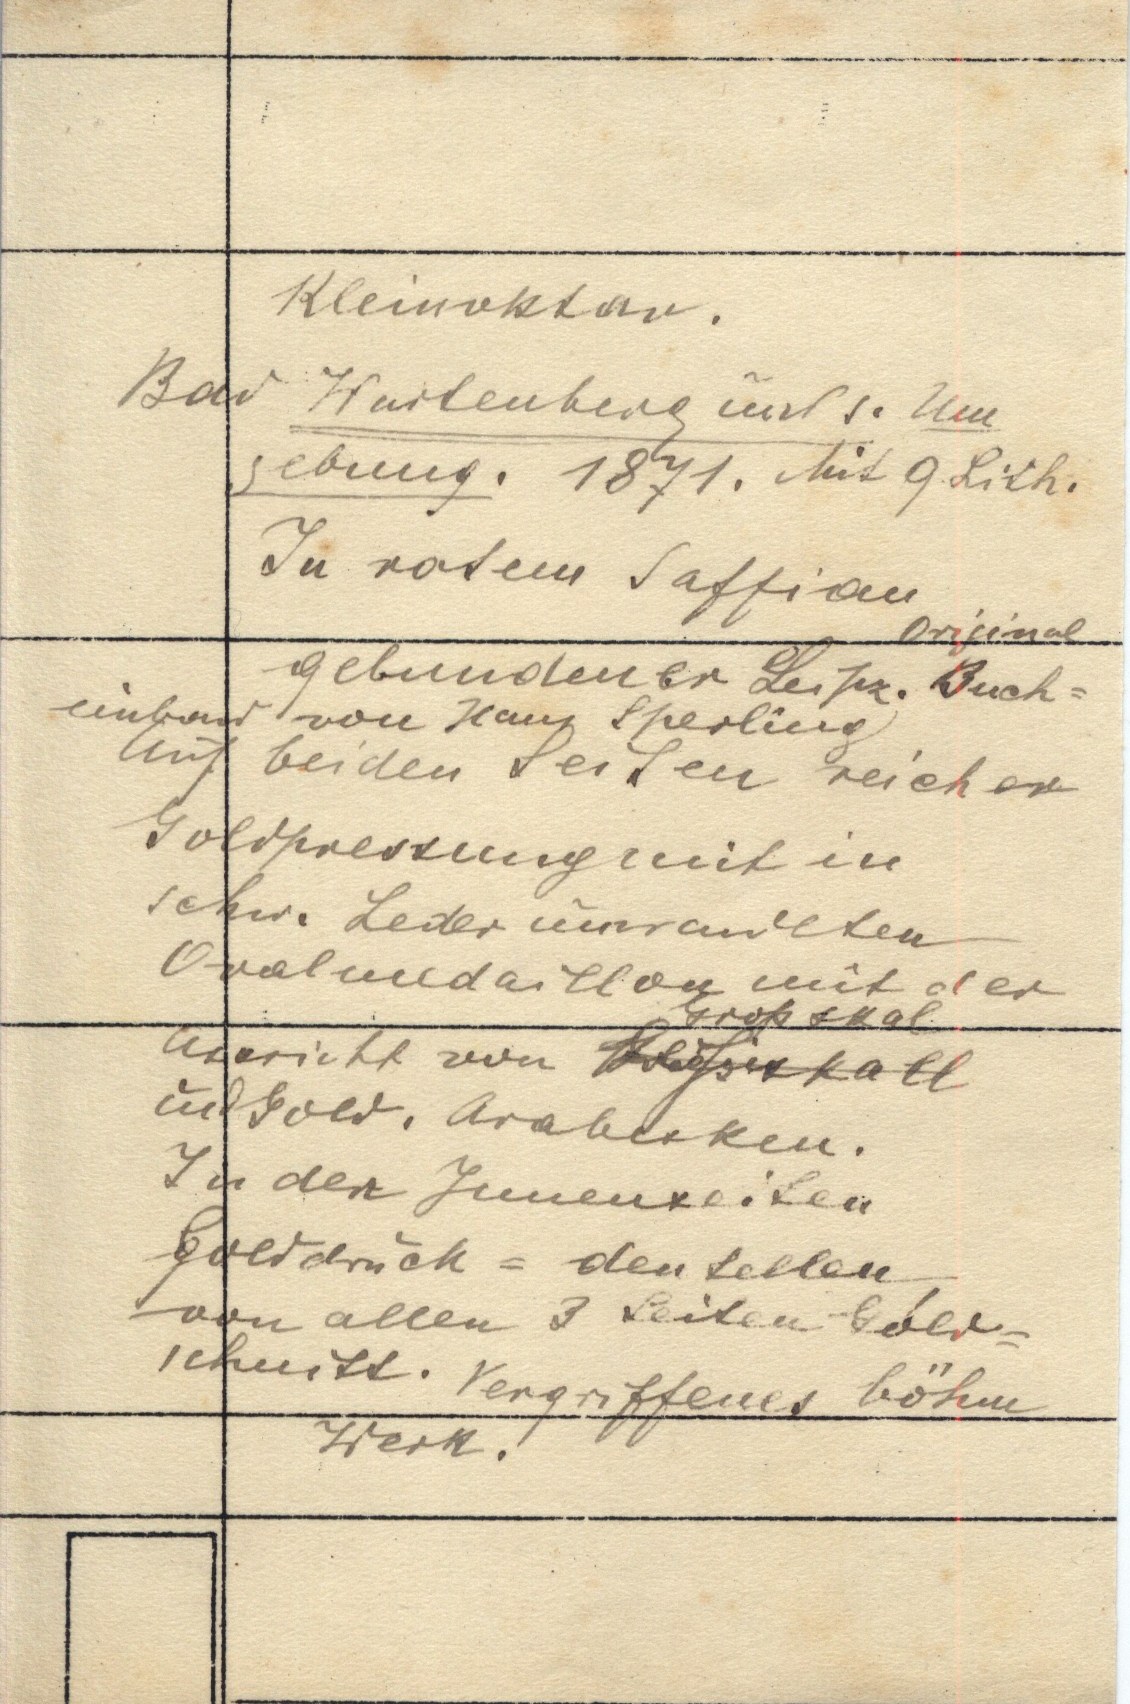 Kleinoktav.
Bad Wartenberg und s. Um
gebung. 1871. Mit 9 Lith.
In rotem Saffian
Original
gebundener Leipz. Buch=
einband von Hans Sperling
Auf beiden Seiten reicher
Goldpressung mit in
schw. Leder umrandeten
Ovalmedaillon mit der
Gross skal
Ansicht von skall
u Gold. Arabesken.
In den Innenseiten
Golddruck = dentellen
von allen 3 Seiten Gold=
schnitt. Vergriffenes böhm
Werk.